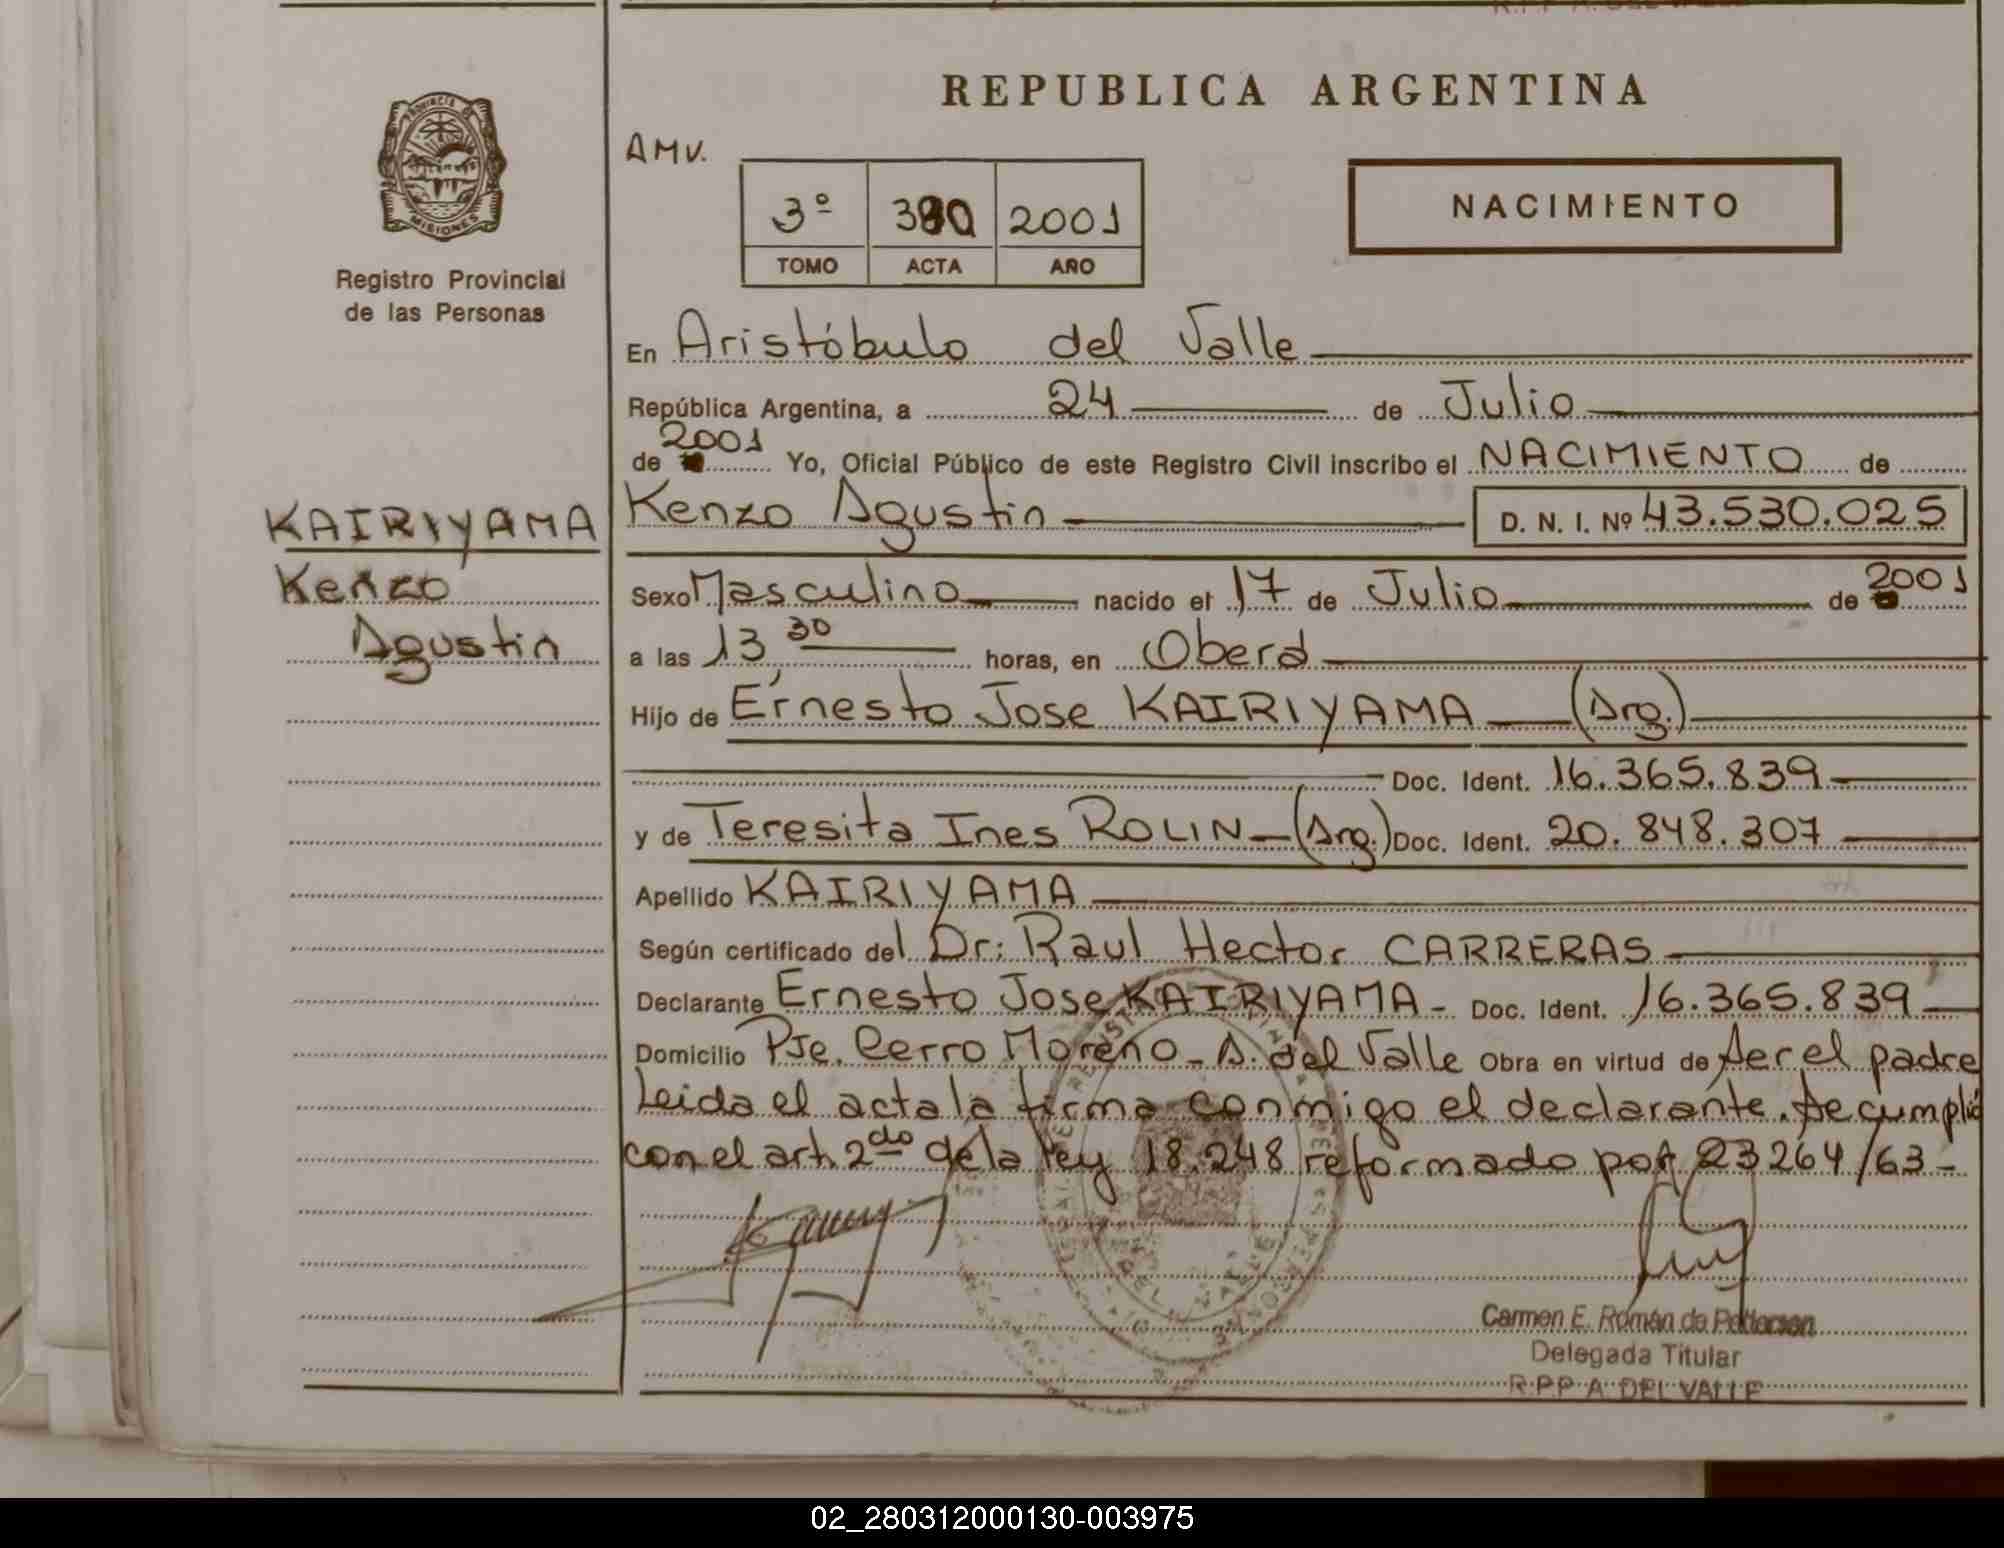 REPUBLICA ARGENTINA
PROVINCIA DE
MISIONES
Registro Provincial
de las Personas
AMV.
3º 2001
TOMO ACTA AÑO
NACIMIENTO
En Aristóbulo del Valle
República Argentina, a 24 de Julio
de 2001 Yo, Oficial Público de este Registro Civil inscribo el NACIMIENTO de
Kenzo Agustin D. N. I. Nº 43.530.025
KAIRIYAMA
Kenzo
Agustin
Sexo Masculino nacido el 17 de Julio de 2001
a las 13 30 horas, en Oberá
Hijo de Ernesto Jose KAIRIYAMA (Arg.)
Doc. Ident. 16.365.839
y de Teresita Ines ROLIN (Arg.) Doc. Ident. 20.848.307
Apellido KAIRIYAMA
Según certificado del Dr: Raul Hector CARRERAS
Declarante Ernesto Jose KAIRIYAMA - Doc. Ident. 16.365.839
Domicilio Pje. Cerro Moreno - A. del Valle Obra en virtud de ser el padre
Leida el acta la firma conmigo el declarante. Se cumplió
con el art. 2do de la ley 18.248 reformado por 23264/63 -
DEL VALLE
Carmen E. Román de
Delegada Titular
R.P.P. A. DEL VALLE
02_280312000130-003975